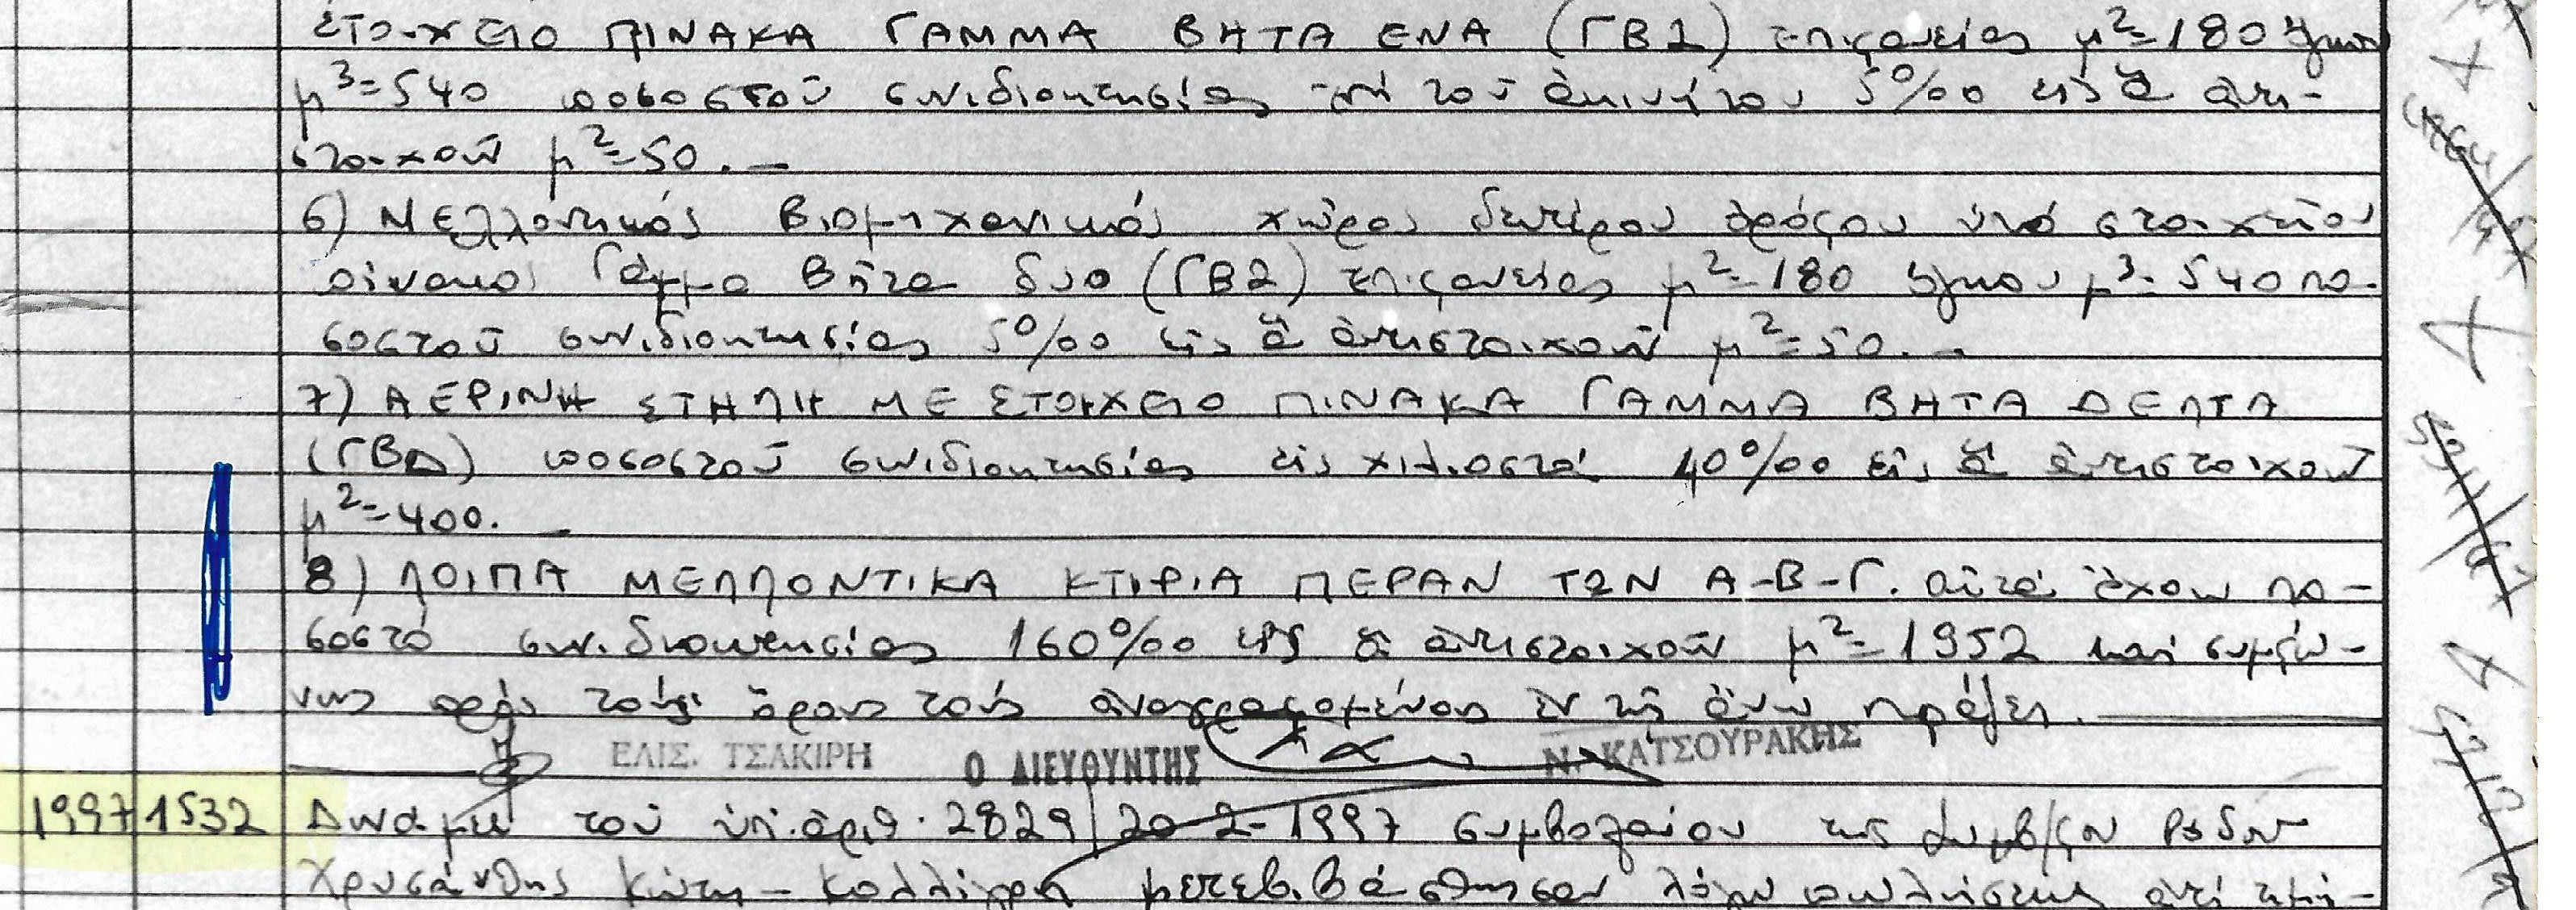 ΣΤΟΙΧΕΙΟ ΠΙΝΑΚΑ ΓΑΜΜΑ ΒΗΤΑ ΕΝΑ (ΓΒ1) ἐπιφανείας μ²=180 ὄγκου
μ³=540 ποσοστοῦ συνιδιοκτησίας ἐπί τοῦ ἀκινήτου 5‰ εἰς ἅ ἀντι-
στοιχοῦν μ²=50.—
6) Μελλοντικός βιομηχανικός χῶρος δευτέρου ὀρόφου ὑπό στοιχεῖον
πίνακος Γάμμα Βῆτα δυο (ΓΒ2) ἐπιφανείας μ²=180 ὄγκου μ³=540 πο-
σοστοῦ συνιδιοκτησίας 5‰ εἰς ἅ ἀντιστοιχοῦν μ²=50.—
7) ΑΕΡΙΝΗ ΣΤΗΛΗ ΜΕ ΣΤΟΙΧΕΙΟ ΠΙΝΑΚΑ ΓΑΜΜΑ ΒΗΤΑ ΔΕΛΤΑ
(ΓΒΔ) ποσοστοῦ συνιδιοκτησίας εἰς χιλιοστά 40‰ εἰς ἅ ἀντιστοιχοῦν
μ²=400.—
8) ΛΟΙΠΑ ΜΕΛΛΟΝΤΙΚΑ ΚΤΙΡΙΑ ΠΕΡΑΝ ΤΩΝ Α-Β-Γ. αὐτά ἔχουν πο-
σοστό συνιδιοκτησίας 160‰ εἰς ἅ ἀντιστοιχοῦν μ²=1952 καί συμφώ-
νως πρός τούς ὅρους τούς ἀναγραφομένους ἐν τῇ ἄνω πράξει.—
ΕΛΙΣ. ΤΣΑΚΙΡΗ Ο ΔΙΕΥΘΥΝΤΗΣ Ν. ΚΑΤΣΟΥΡΑΚΗΣ
1997 1532 Δυνάμει τοῦ ὑπ. ἀριθ. 2829/20-2-1997 συμβολαίου της Συμβ/φου Ρόδου
Χρυσάνθης Κώτη - Καλλίγα μετεβιβάσθησαν λόγω πωλήσεως ἀντί τιμή-